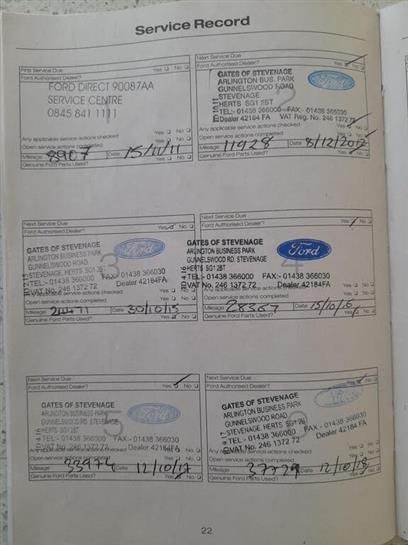 Service Record
First Service Due
Ford Authorised Dealer? Yes No
FORD DIRECT 90087AA
SERVICE CENTRE
0845 841 1111
Any applicable service actions checked Yes No
Open service actions completed Yes No
Mileage: 8907 Date: 15/11/11
Genuine Ford Parts Used? Yes No
Next Service Due
Ford Authorised Dealer? Yes No
GATES OF STEVENAGE
ARLINGTON BUS. PARK
GUNNELSWOOD ROAD
STEVENAGE
HERTS SG1 2BT
TEL:- 01438 366000 FAX:- 01438 366030
Dealer 42184 FA VAT Reg. No. 246 1372 72
Ford
2
Any applicable service actions checked Yes No
Open service actions completed Yes No
Mileage: 11928 Date: 8/12/2012
Genuine Ford Parts Used? Yes No
Next Service Due
Ford Authorised Dealer? Yes No
GATES OF STEVENAGE
ARLINGTON BUSINESS PARK
GUNNELSWOOD ROAD
STEVENAGE, HERTS SG1 2BT
TEL:- 01438 366000 FAX:- 01438 366030
VAT No. 246 1372 72 Dealer 42184FA
Ford
3
service actions checked Yes No
Open service actions completed Yes No
Mileage: Date: 30/10/15
Genuine Ford Parts Used? Yes No
Next Service Due
Ford Authorised Dealer? Yes No
GATES OF STEVENAGE
ARLINGTON BUSINESS PARK
GUNNELSWOOD RD. STEVENAGE
HERTS SG1 2BT
TEL:- 01438 366000 FAX:- 01438 366030
VAT No. 246 1372 72 Dealer 42184FA
Ford
4
service actions checked Yes No
Open service actions completed Yes No
Mileage: 28567 Date: 15/10/16
Genuine Ford Parts Used? Yes No
Next Service Due
Ford Authorised Dealer? Yes No
GATES OF STEVENAGE
ARLINGTON BUSINESS PARK
GUNNELSWOOD ROAD
STEVENAGE, HERTS
SG1 2BT
TEL:- 01438 366000 FAX:- 01438 366030
VAT No. 246 1372 72 Dealer 42184 FA
Ford
5
Open service actions completed Yes No
Mileage: 33974 Date: 12/10/17
Genuine Ford Parts Used? Yes No
Next Service Due
Ford Authorised Dealer? Yes No
GATES OF STEVENAGE
ARLINGTON BUSINESS PARK
GUNNELSWOOD ROAD
STEVENAGE, HERTS
TEL:- 01438 366000 FAX:- 01438 366030
VAT No. 246 1372 72 Dealer 42184 FA
Open service actions completed Yes No
Mileage: 37729 Date: 12/10/18
Genuine Ford Parts Used? Yes No
22